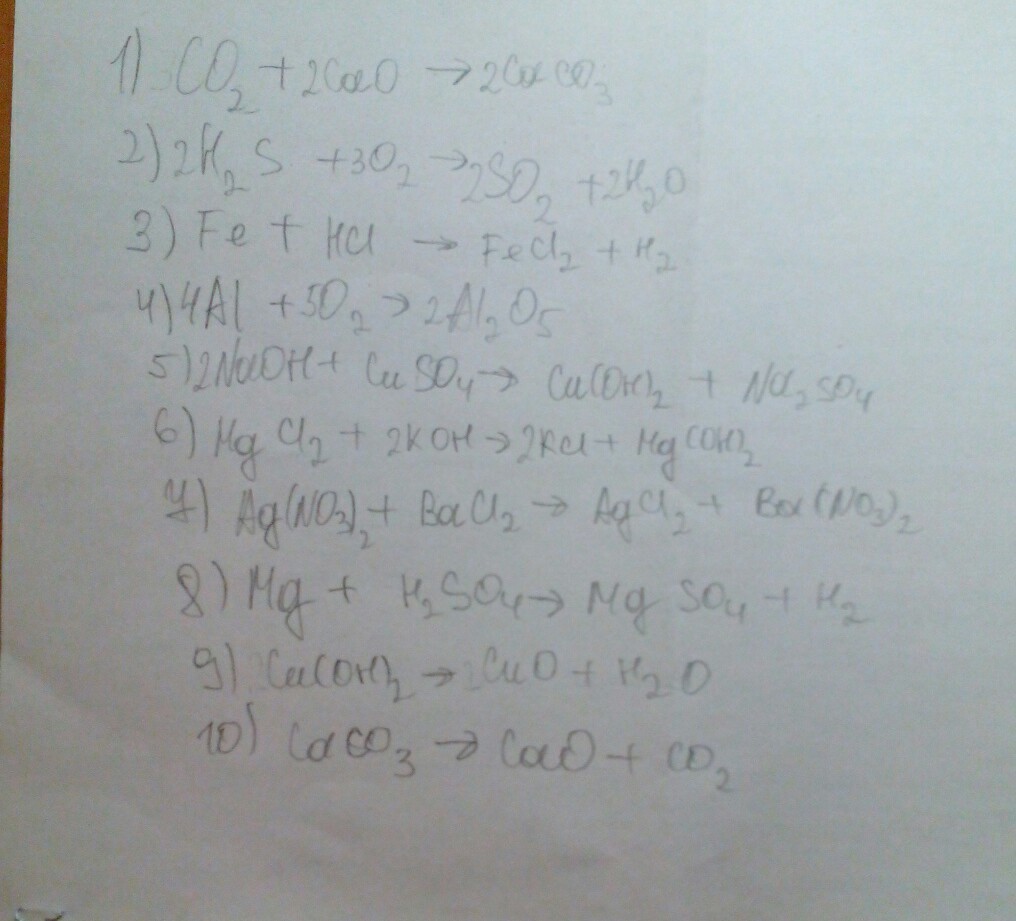 1) CO₂ + 2CaO → 2CaCO₃
2) 2H₂S + 3O₂ → 2SO₂ + 2H₂O
3) Fe + HCl → FeCl₂ + H₂
4) 4Al + 5O₂ → 2Al₂O₅
5) 2NaOH + CuSO₄ → Cu(OH)₂ + Na₂SO₄
6) MgCl₂ + 2KOH → 2KCl + Mg(OH)₂
7) Ag(NO₃)₂ + BaCl₂ → AgCl₂ + Ba(NO₃)₂
8) Mg + H₂SO₄ → MgSO₄ + H₂
9) Cu(OH)₂ → CuO + H₂O
10) CaCO₃ → CaO + CO₂